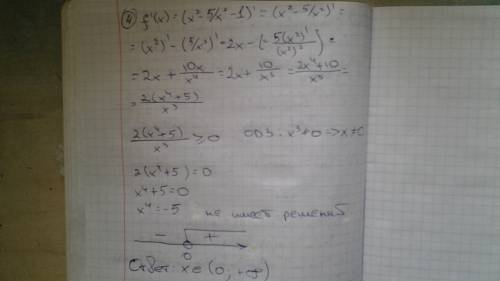 ④ f'(x) = (x² - 5/x² - 1)' = (x² - 5/x²)' =
= (x²)' - (5/x²)' = 2x - (- 5(x²)'/(x²)²) =
= 2x + 10x/x⁴ = 2x + 10/x³ = 2x⁴+10/x³ =
= 2(x⁴+5)/x³
2(x⁴+5)/x³ ≥ 0 ОДЗ: x³≠0 => x≠0
2(x⁴+5) = 0
x⁴+5=0
x⁴ = -5 не имеет решений
- +
0
Ответ: x∈(0; +∞)